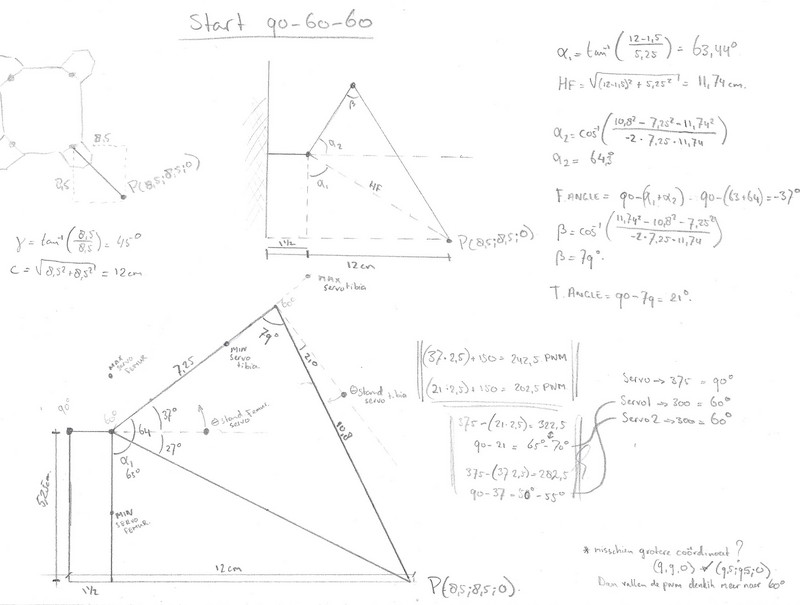 Start 90-60-60
8,5
8,5
P(8,5;8,5;0)
γ = tan⁻¹(8,5/8,5) = 45°
C = √(8,5²+8,5²) = 12cm
β
α2
α1
HF
P(8,5;8,5;0)
1½
12cm
α1 = tan⁻¹((12-1,5)/5,25) = 63,44°
HF = √((12-1,5)² + 5,25²) = 11,74cm.
α2 = cos⁻¹((10,8² - 7,25² - 11,74²)/(-2 · 7,25 · 11,74))
α2 = 64,3°
F.ANGLE = 90-(α1+α2) · 90-(63+64) = -37°
β = cos⁻¹((11,74² - 10,8² - 7,25²)/(-2 · 7,25 · 11,74))
β = 79°.
T.ANGLE = 90-79 = 21°.
MAX
servo tibia
60°
79°
MIN
servo
tibia
7,25
MAX
SERVO
FEMUR
21,0
stand
servo tibia
10,8
90°
60°
37°
64
27°
stand Femur
servo
α1
63°
MIN
SERVO
FEMUR
5,25cm
12cm
1½
P(8,5;8,5;0).
(37·2,5)+150 = 242,5 PWM
(21·2,5)+150 = 202,5 PWM
375-(21·2,5) = 322,5
90-21 = 65°-70°
375-(37·2,5) = 282,5
90-37 - 50° - 55°
Servo → 375 = 90°
Servo1 → 300 = 60°
Servo2 → 300 = 60°
* misschien grotere coördinaat?
(9,9,0) ✓ (9,5;9,5;0)
Dan vallen de pwm dicht meer naar 60°